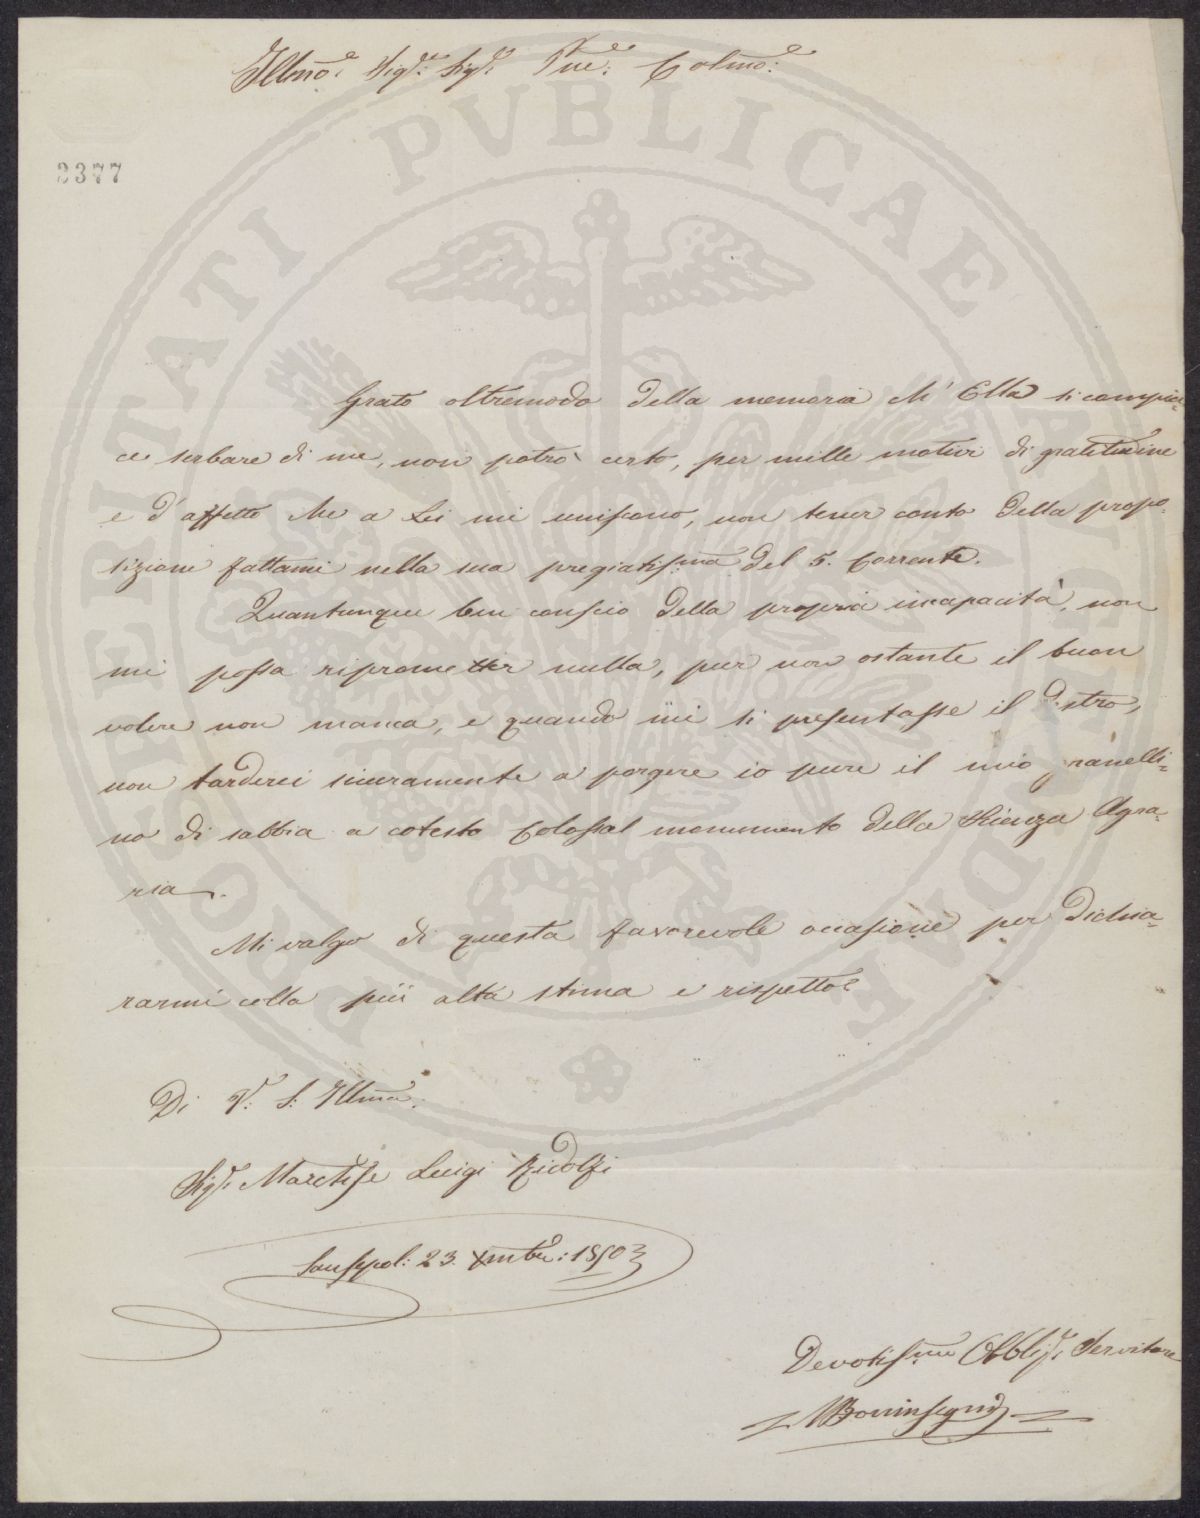 Illmo: Sigr: Sigr: Pne: Colmo:
2377
Grato oltremodo della memoria ch' Ella si compia=
ce serbare di me, non potrò certo, per mille motivi di gratitudine
e d'affetto che a Lei mi uniscono, non tener conto della propo=
sizione fattami nella sua pregiatissma del 5. Corrente.
Quantunque ben conscio della propria incapacità, non
mi possa ripromettter nulla, pur non ostante il buon
volere non manca, e quando mi si presentasse il destro,
non tarderei sicuramente a porgere io pure il mio granelli=
no di sabbia a cotesto Colossal monumento della Scienza Agra=
ria.
Mi valgo di questa favorevole occasione per dichia=
rarmi colla più alta stima e rispetto
Di V. S: Illma:
Sigr: Marchese Luigi Ridolfi
Sansepol: 23. Xmbre: 1850
Devotissmo Obbligo: Servitore
Boninsegni
PROSPERITATI PVBLICAE AVGENDAE